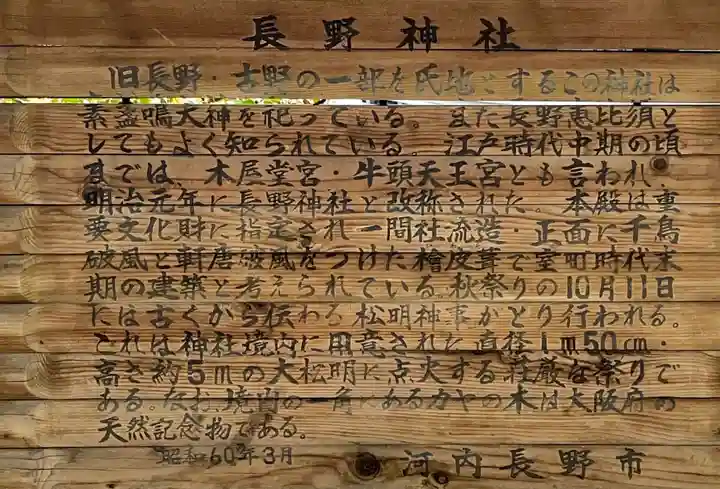 長野神社
旧長野・古野の一部を氏地とするこの神社は
素盞嗚大神を祀っている。また長野恵比須と
してもよく知られている。江戸時代中期の頃
までは、木屋堂宮・牛頭天王宮とも言われ、
明治元年に長野神社と改称された。本殿は重
要文化財に指定され一間社流造・正面に千鳥
破風と軒唐破風をつけた檜皮葺で室町時代末
期の建築と考えられている。秋祭りの10月11日
には古くから伝わる松明神事がとり行われる。
これは神社境内に用意された直径1m50㎝・
高さ約5mの大松明に点火する荘厳な祭りで
ある。なお、境内の一角にあるカヤの木は大阪府の
天然記念物である。
昭和60年3月 河内長野市